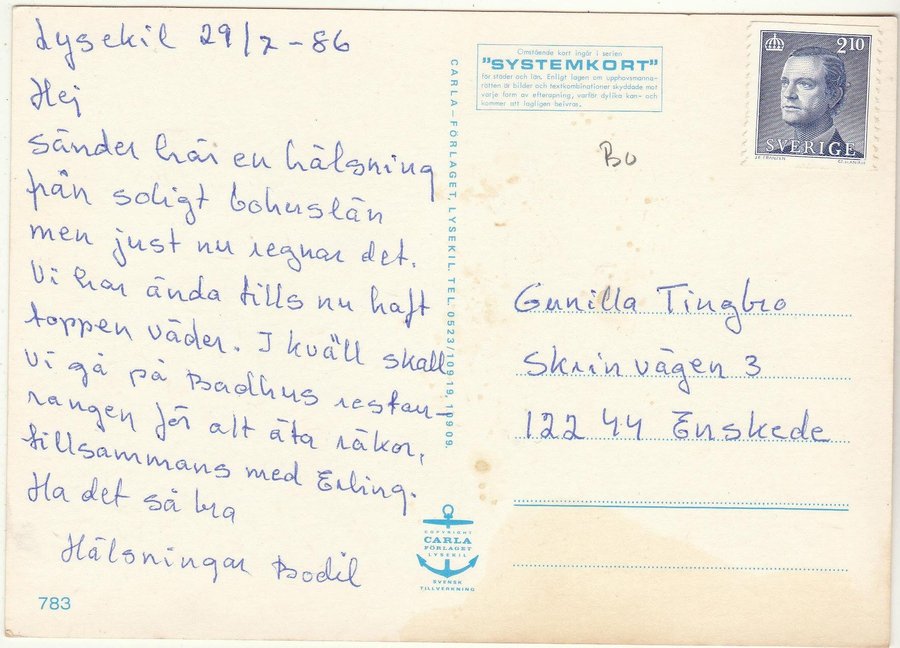 Lysekil 29/7-86
Hej
sänder här en hälsning
från soligt bohuslän
men just nu regnar det.
Vi har ända tills nu haft
toppen väder. I kväll skall
vi gå på Badhus restau-
rangen för att äta räkor,
tillsammans med Erling.
Ha det så bra
Hälsningar Bodil
783
CARLA-FÖRLAGET, LYSEKIL. TEL. 0523/109 19, 109 09.
COPYRIGHT
CARLA
FÖRLAGET
LYSEKIL
SVENSK
TILLVERKNING
Omstående kort ingår i serien
"SYSTEMKORT"
för städer och län. Enligt lagen om upphovsmanna-
rätten är bilder och textkombinationer skyddade mot
varje form av efterapning, varför dylika kan- och
kommer att lagligen beivras.
Bo
2.10
SVERIGE
Gunilla Tingbro
Skrinvägen 3
122 44 Enskede